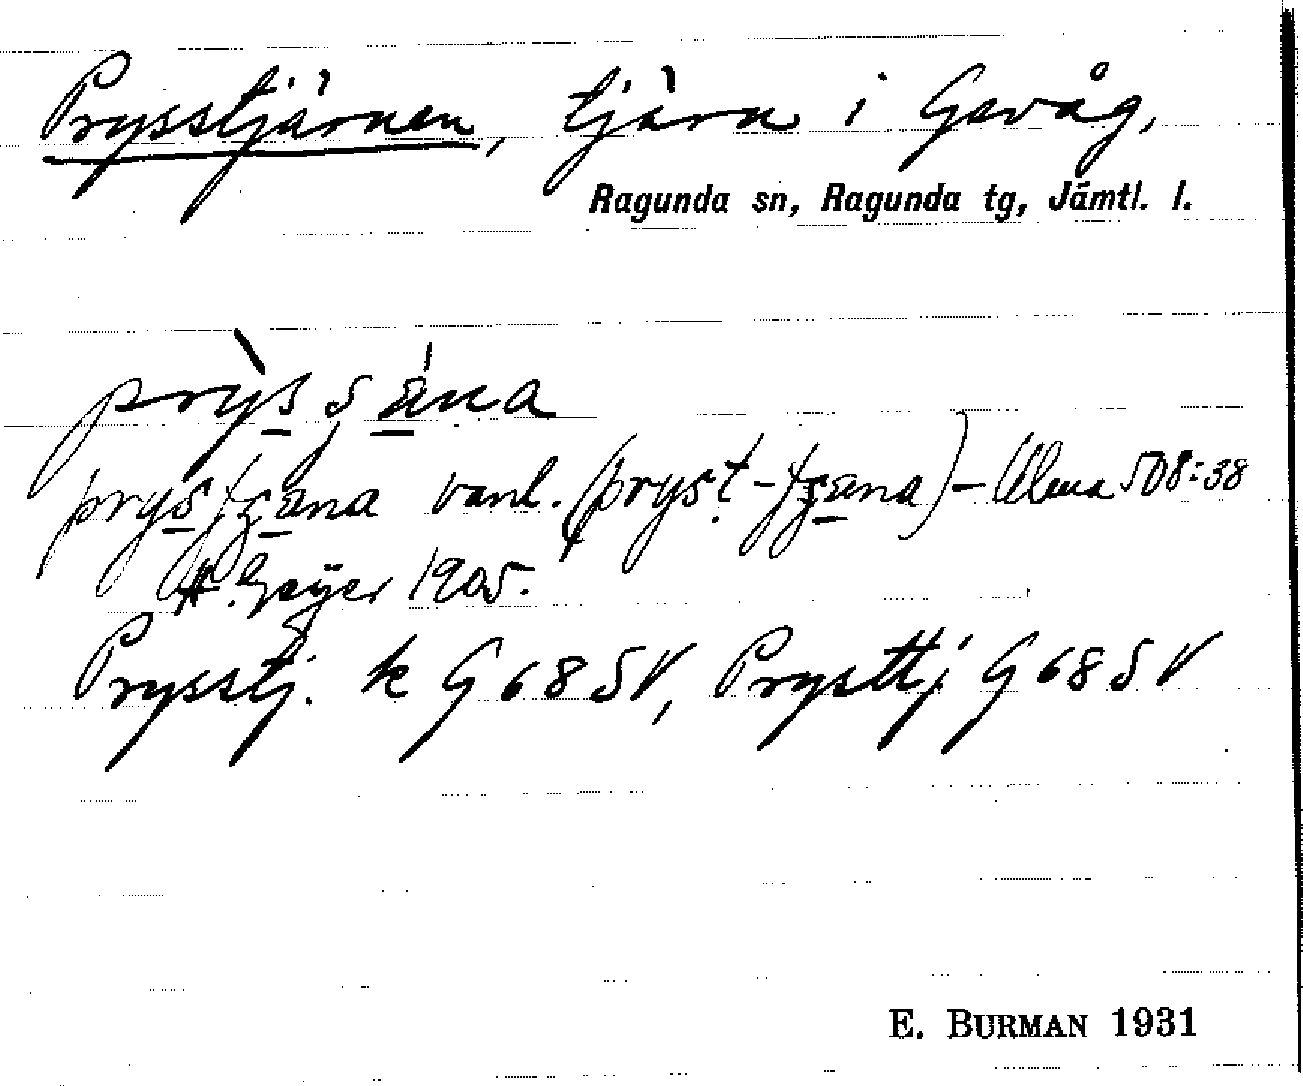 Prysstjärnen, tjärn i Gevåg,
Ragunda sn, Ragunda tg, Jämtl. l.
vanl. Ulma 508:38
H. Geijer 1905.
Prysstj. k G 68 SV, Prysttj G 68 SV
E. BURMAN 1931